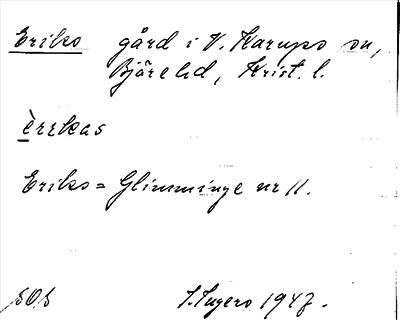 Eriks gård i V. Karups sn,
Bjäre hd, Krist. l.
èrrkas
Eriks = Glimminge nr 11.
SOS I. Ingers 1947.